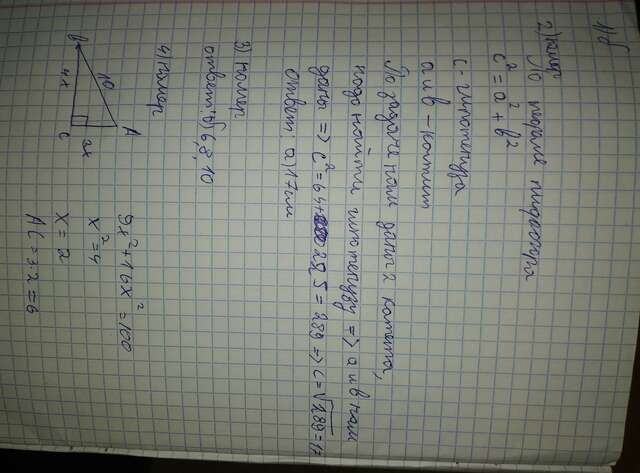 2) По теореме пифагора
c² = a² + b²
c - гипотенуза
a и b - катеты
По задаче нам дана 2 катета,
надо найти гипотенузу => a и b нам
даны => c² = 64 + 225 = 289 => c = √289 = 17
ответ: а) 17 см
3) номер
ответ: б) 6,8,10
4) номер
A
B
C
10
4x
3x
9x² + 16x² = 100
x² = 4
x = 2
AC = 3·2 = 6